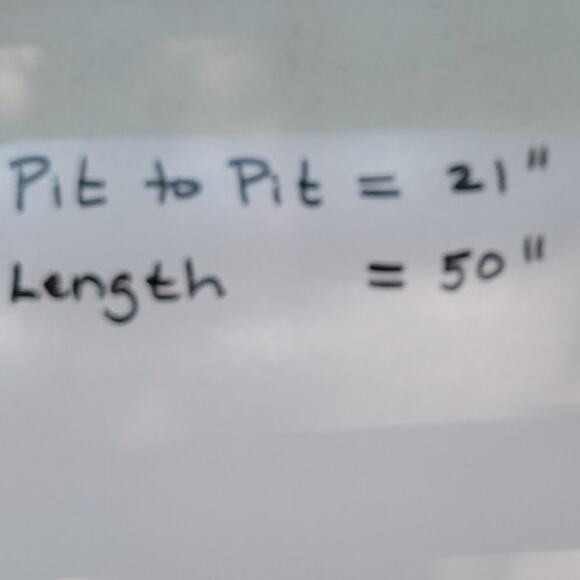 Pit to Pit = 21"
Length = 50"